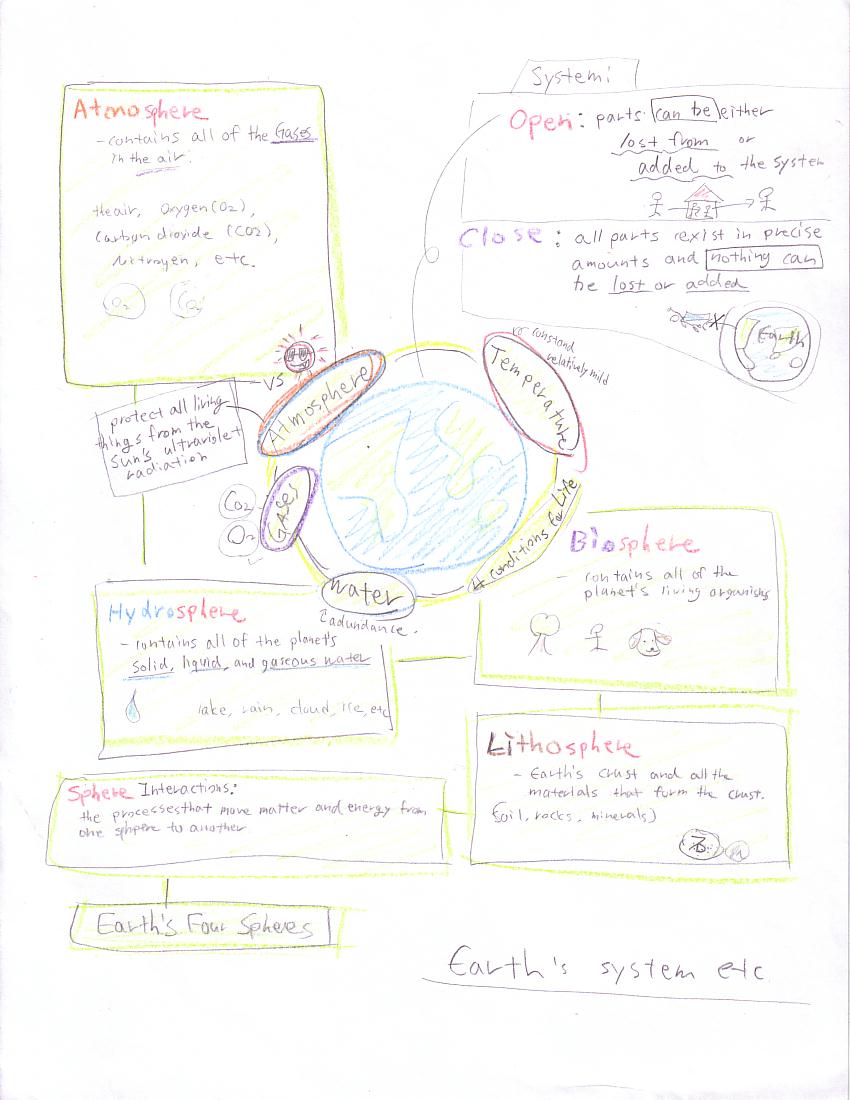 System:
Open: parts can be either
lost from or
added to the system
Close: all parts exist in precise
amounts and nothing can
be lost or added
Earth
Atmosphere
- contains all of the Gases
in the air.
the air, Oxygen (O2),
Carbon dioxide (CO2),
Nitrogen, etc.
O2
CO2
VS
Atmosphere
protect all living
things from the
sun's ultraviolet
radiation
constand
relatively mild
Temperature
GASES
CO2
O2
Water
adundance.
4 conditions for Life
Biosphere
- contains all of the
planet's living organisms
Hydrosphere
- contains all of the planet's
solid, liquid, and gaseous water
lake, rain, cloud, ice, etc
Lithosphere
- Earth's crust and all the
materials that form the crust.
(soil, rocks, minerals)
Sphere Interactions:
the processes that move matter and energy from
one sphere to another
Earth's Four Spheres
Earth's system etc